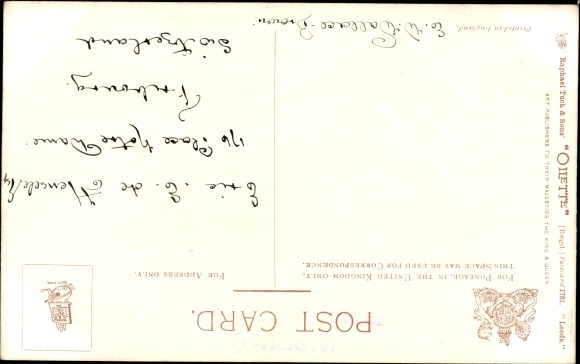 POST CARD.
FOR POSTAGE IN THE UNITED KINGDOM ONLY,
THIS SPACE MAY BE USED FOR CORRESPONDENCE.
FOR ADDRESS ONLY.
Eric. E. de
176 Place Notre Dame
Fribourg.
Switzerland
E. W. Wallace-Brown
Raphael Tuck & Sons' "OILETTE" [Regd.] Postcard 1781. "Leeds."
ART PUBLISHERS TO THEIR MAJESTIES THE KING & QUEEN.
Printed in England.